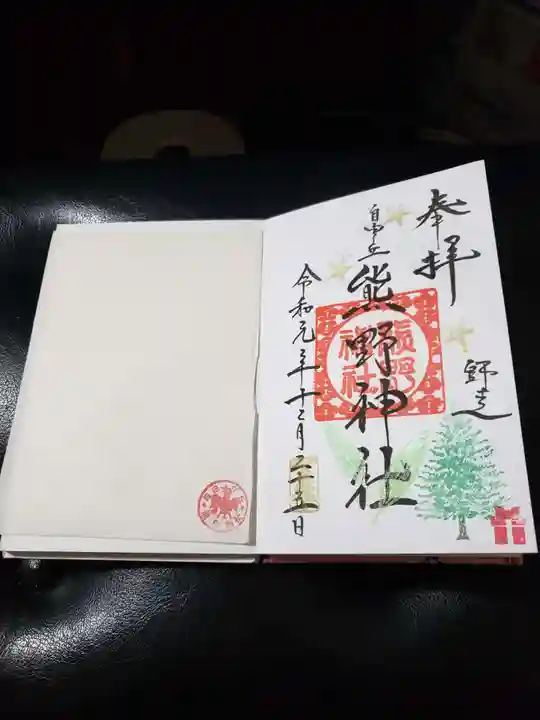 奉拝
師走
自由が丘
熊野神社
熊野
神社
令和元年十二月二十五日